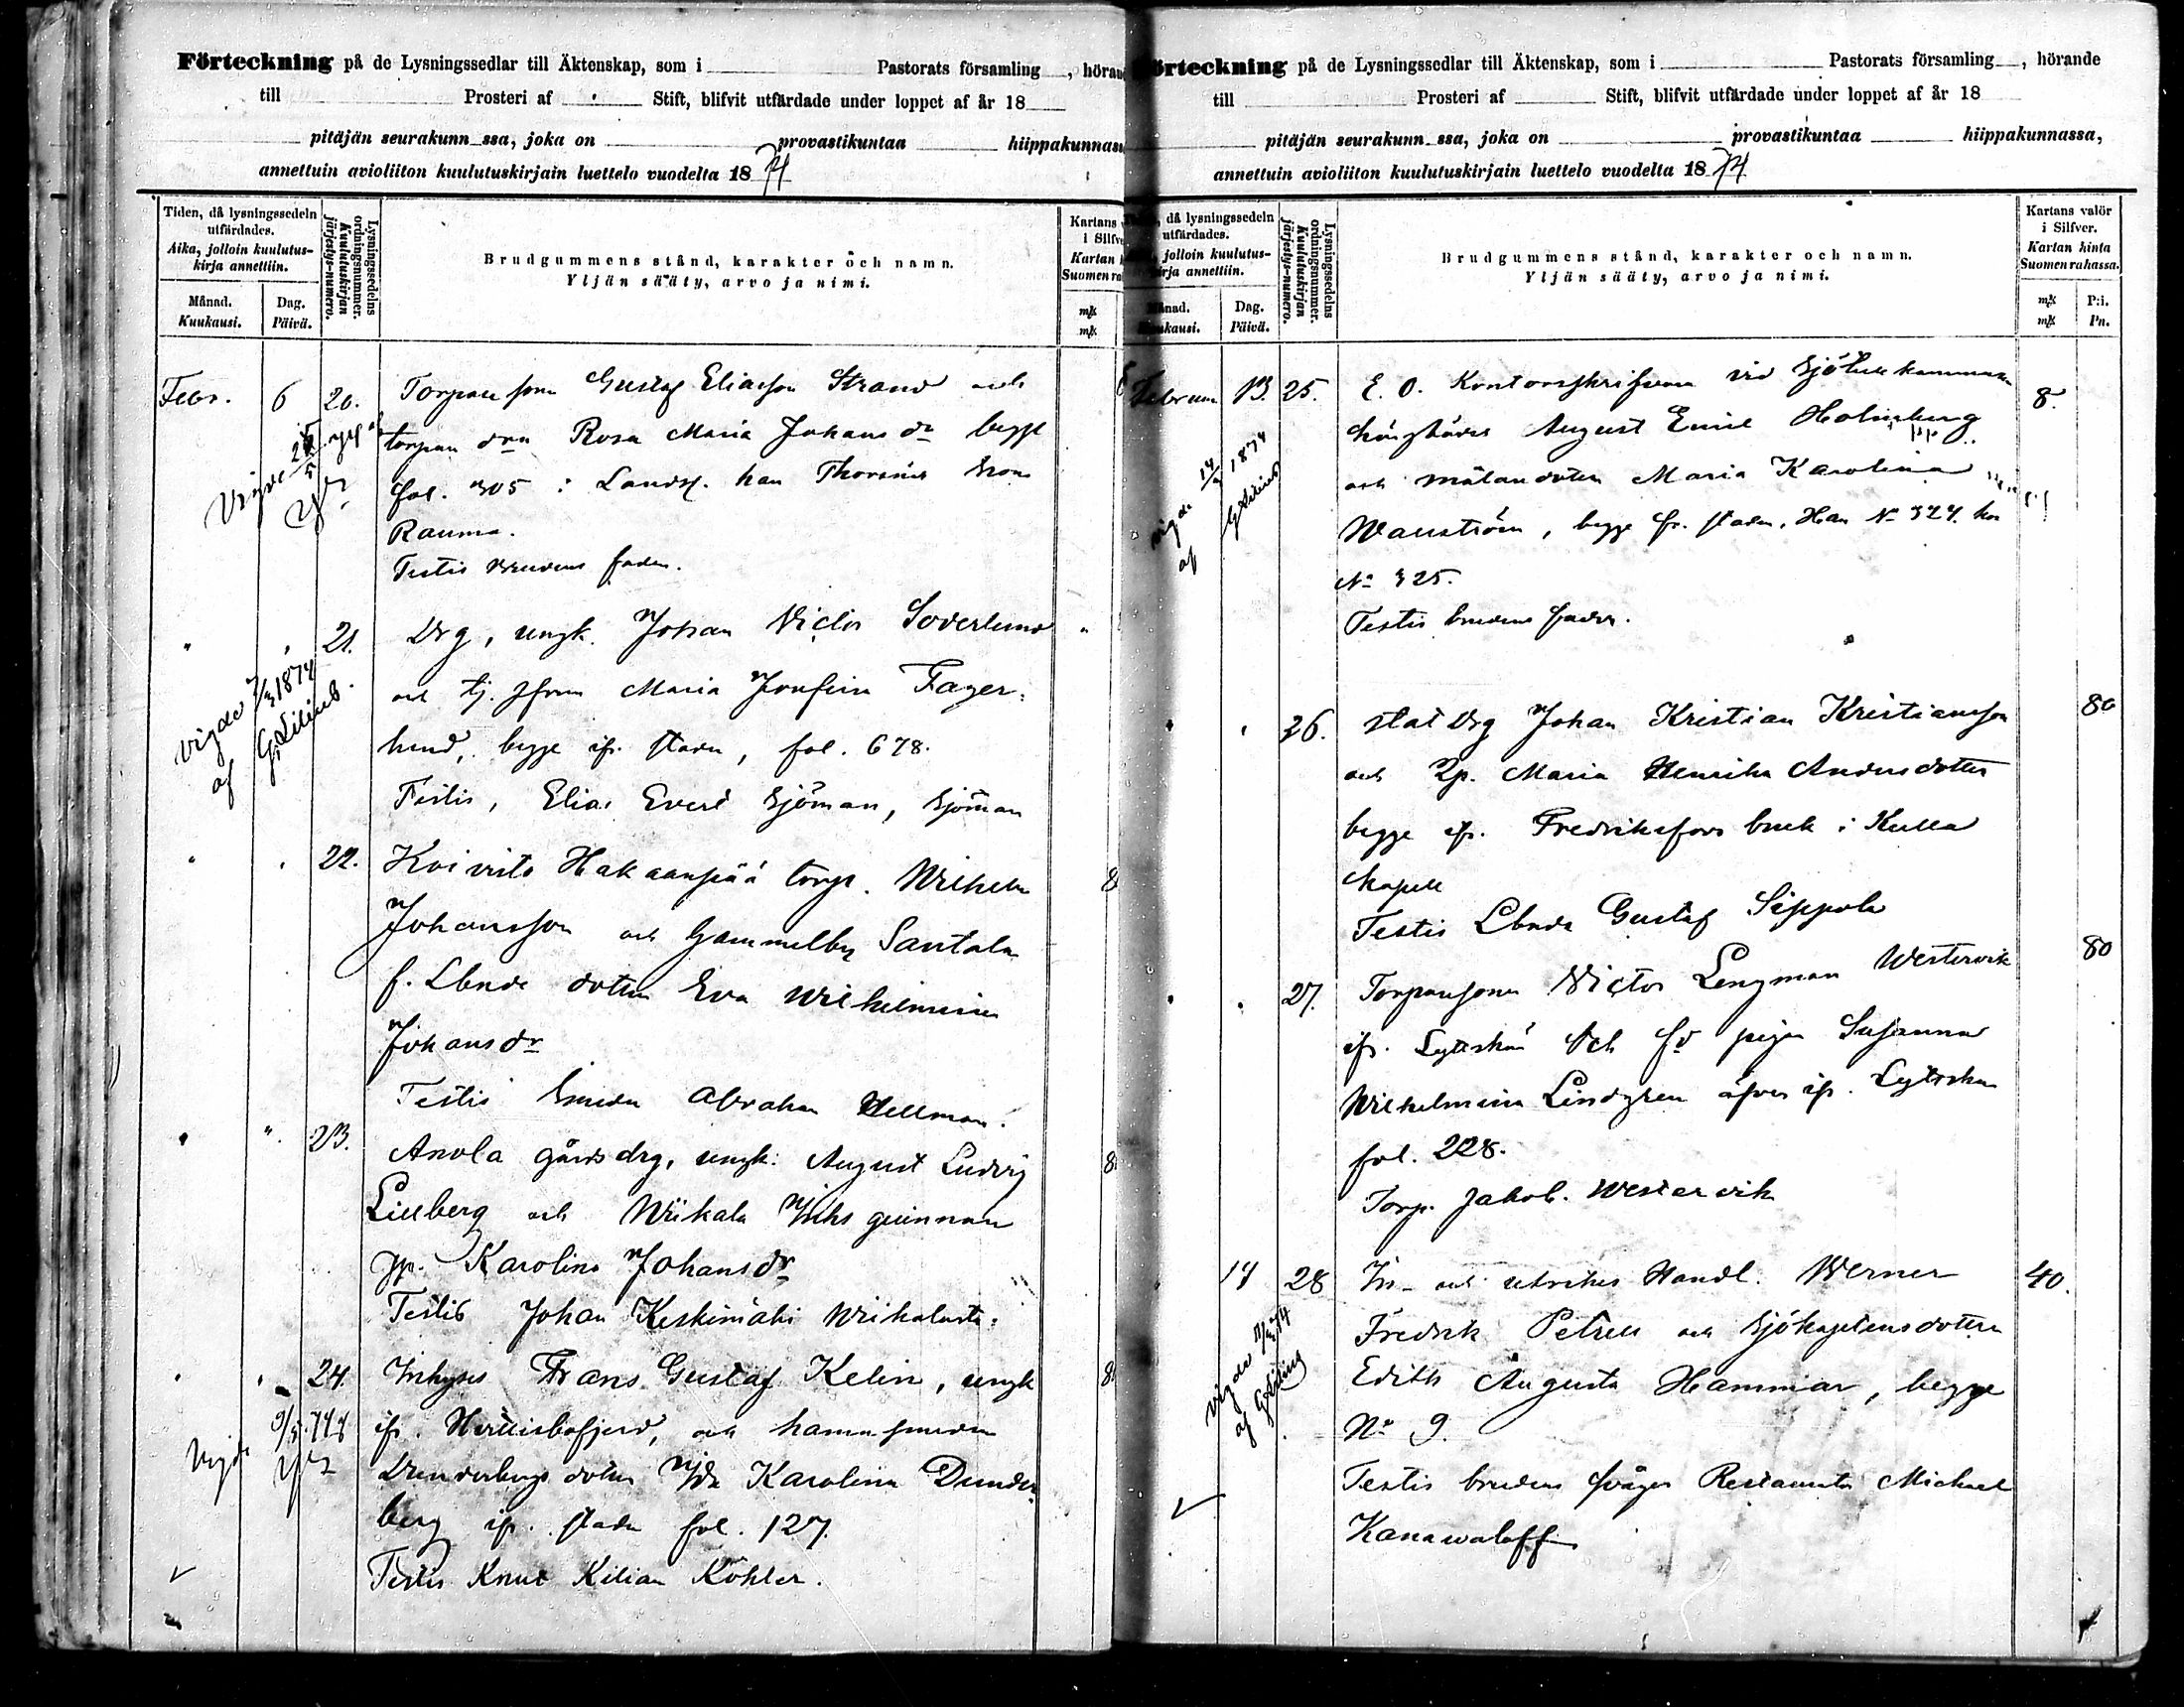 Förteckning på de Lysningssedlar till Äktenskap, som i Pastorats församling, höran
till Prosteri af Stift, blifvit utfärdade under loppet af år 18
pitäjän seurakunn ssa, joka on provastikuntaa hiippakunnass
annettuin avioliiton kuulutuskirjain luettelo vuodelta 1874
Tiden, då lysningssedeln utfärdades.
Aika, jolloin kuulutus-kirja annettiin.
Månad. Kuukausi.
Dag. Päivä.
Lysningssedelns ordningsnummer.
Kuulutuskirjan järjestys-numero.
Brudgummens stånd, karakter och namn.
Yljän sääty, arvo ja nimi.
Kartans
i Silfve
Kartan
Suomen ra
mk
mk
Febr. 6 20. Torpare son Gustaf Eliasson Strand och
torpare dra Rosa Maria Johans dr begge
fol. 305 i Landsf. han
Rauma.
Testis brudens fader.
Vigde
" " 21. Drg, ungk. Johan Victor Soderlund "
och tj. Maria Josefina Fager-
lund, begge ifr. staden, fol. 678.
Testis, Elias Evert Sjöman, Sjöman
Vigde 7/3 1874
af G Lilius.
" " 22. Koivisto Hakaanpää torp. Wilhelm 8
Johansson och Gammelby Santala
f. Lbnde dotter Eva Wilhelmina
Johansdr
Testis Smeden Abraham Hellman.
" " 23. Anola gårds drg, ungk. August Ludvig 8
Lilberg och Wiikala Inhs qvinnan
Karolina Johansdr
Testis Johan Keskimäki Wiikalasta.
" " 24. Inhyses Frans Gustaf Kelin, ungk 8
ifr. och hamnsmeden
Dunderbergs dotter Ida Karolina Dunder
berg ifr. staden fol. 127.
Testis Knut Kilian Köhler.
Vigde
Förteckning på de Lysningssedlar till Äktenskap, som i Pastorats församling, hörande
till Prosteri af Stift, blifvit utfärdade under loppet af år 18
pitäjän seurakunn ssa, joka on provastikuntaa hiippakunnassa,
annettuin avioliiton kuulutuskirjain luettelo vuodelta 1874
då lysningssedeln utfärdades.
jolloin kuulutus-kirja annettiin.
Månad. Kuukausi.
Dag. Päivä.
Lysningssedelns ordningsnummer.
Kuulutuskirjan järjestys-numero.
Brudgummens stånd, karakter och namn.
Yljän sääty, arvo ja nimi.
Kartans valör
i Silfver.
Kartan hinta
Suomen rahassa.
mk P:i.
mk Pn.
Februari 13. 25. E. O. Kontorsskrifvaren vid Sjötullkammaren 8.
August Emil Holmberg
och Maria Karolina
Wanström, begge fr. staden, Han No 324. hon
No 325.
Testis brudens fader.
vigde 14/ 1874
af G Lilius
" " 26. stat Drg Johan Kristian Kristiansson 80
och Pp. Maria Henrika Andersdotter
begge ifr. Fredriksfors bruk i Kulla
Kapell
Testis Lbnde Gustaf Seppola
" " 27. Torparesonen Victor Lengman Westervik 80
ifr. Lyttskär och fd pigan Susanna
Wilhelmina Lindgren äfven ifr. Lyttskär
fol. 228.
Torp. Jakob Westervik
17 28 In- och utrikes Handl. Werner 40.
Fredrik Petrell och Sjökaptensdottern
Edith Augusta Hammar, begge
No 9.
Testis brudens svåger Michael
Kanawaloff
vigde
af G Lilius